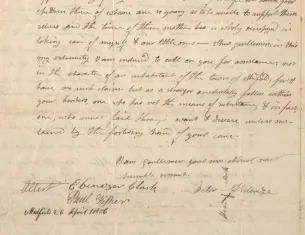 children three of whom are so young as to be unable to support them
selves and the time of their mother has is wholy occupied in
taking care of myself & our little ones — Thus gentlemen in this
my extremity I am induced to call on you for assistance not
in the character of an inhabitant of the town of for I
have no such claim but as a stranger accidentally fallen within
your borders, one who has not the means of subsistence & in fact
one, who must sink through want & disease unless sus-
tained by the fostering hand of your care
I am gentlemen your most obedient
humble servant
Attest Ebenezer Clark Peter
+
Medfield 26 April 1806